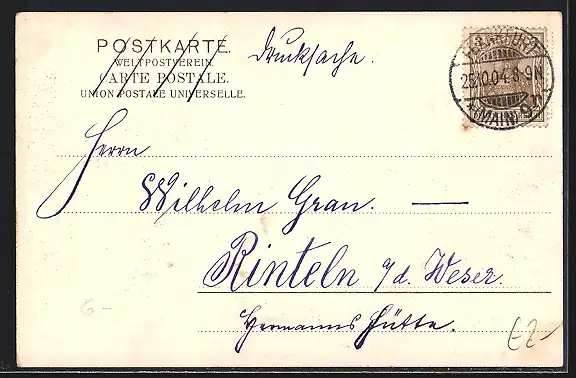 POSTKARTE.
WELTPOSTVEREIN.
CARTE POSTALE.
UNION POSTALE UNIVERSELLE.
Drucksache.
FRANKFURT
25.10.04.8-9N
(MAIN) 9
Herrn
Wilhelm Grau.
Rinteln a/d. Weser.
Hermanns Hütte.
6-
E2-